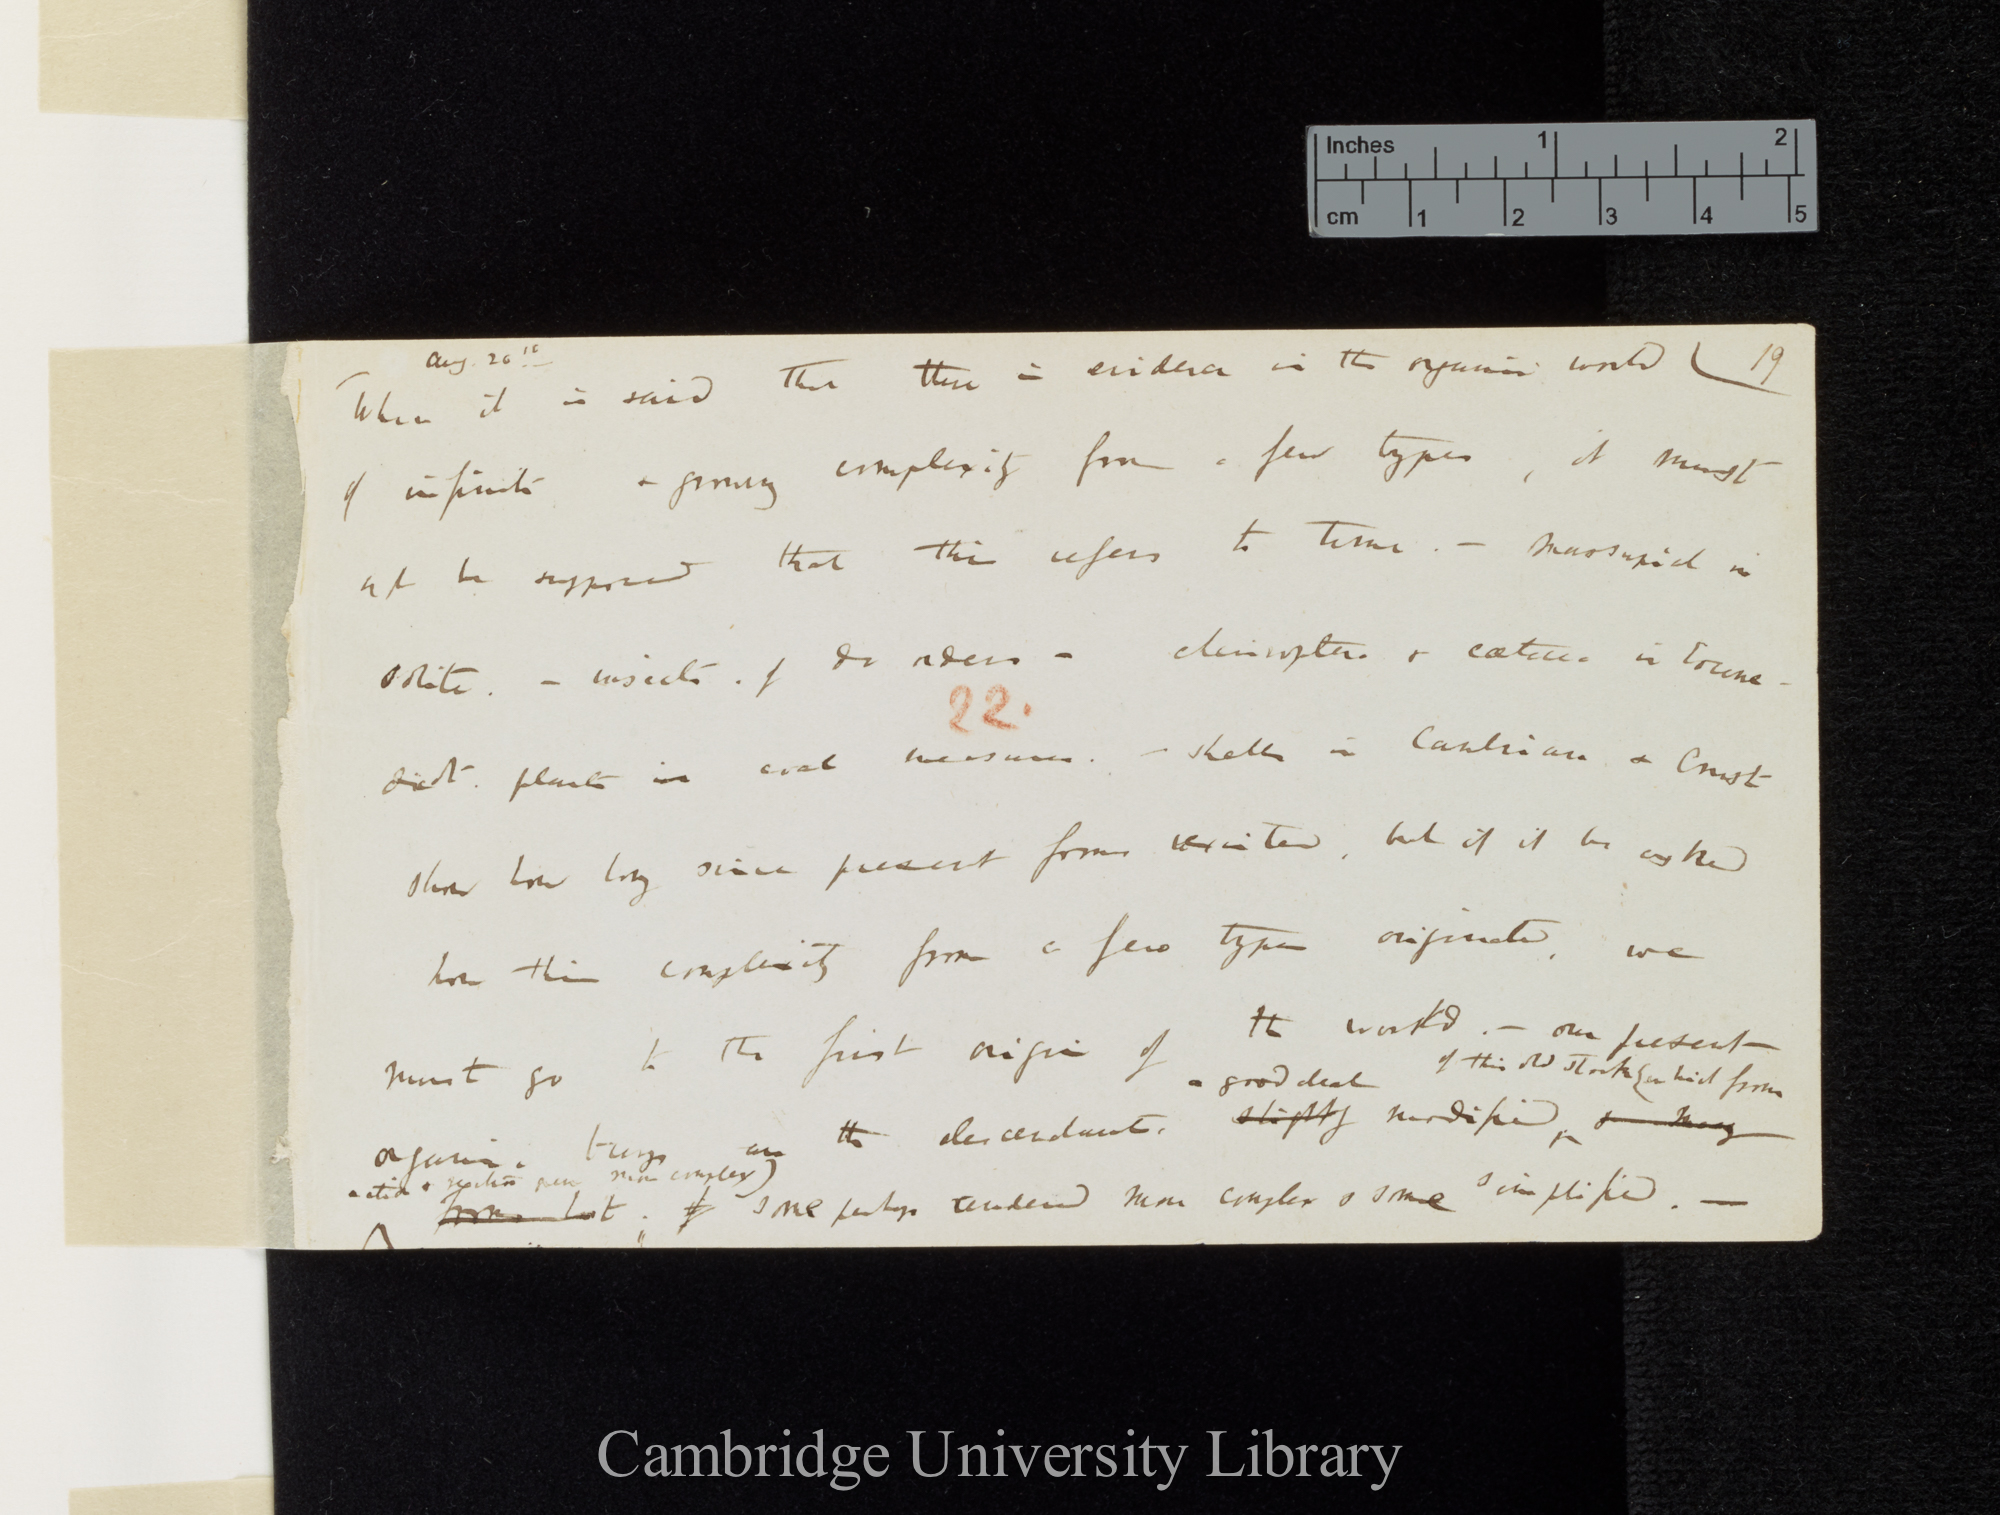 Inches 1 2
cm 1 2 3 4 5
Aug. 26th 19
When it is said that there is evidence in the organic world
of infinite & growing complexity from a few types, it must
not be supposed that this refers to time. — Marsupial in
oolite. — insects. of do orders — cheiroptera & cetacea in Eocene —
dicot. plants in coal measures. — shells in Cambrian & Crust
22.
show how long since present forms existed, but if it be asked
how this complexity from a few types originated, we
must go to the first origin of the world. — our present
a good deal of this old stock (which from
organic beings are the descendants. slightly modified, & many
action & reaction grew more complex)
from last. & some perhaps rendered more complex & some simplified. —
Cambridge University Library